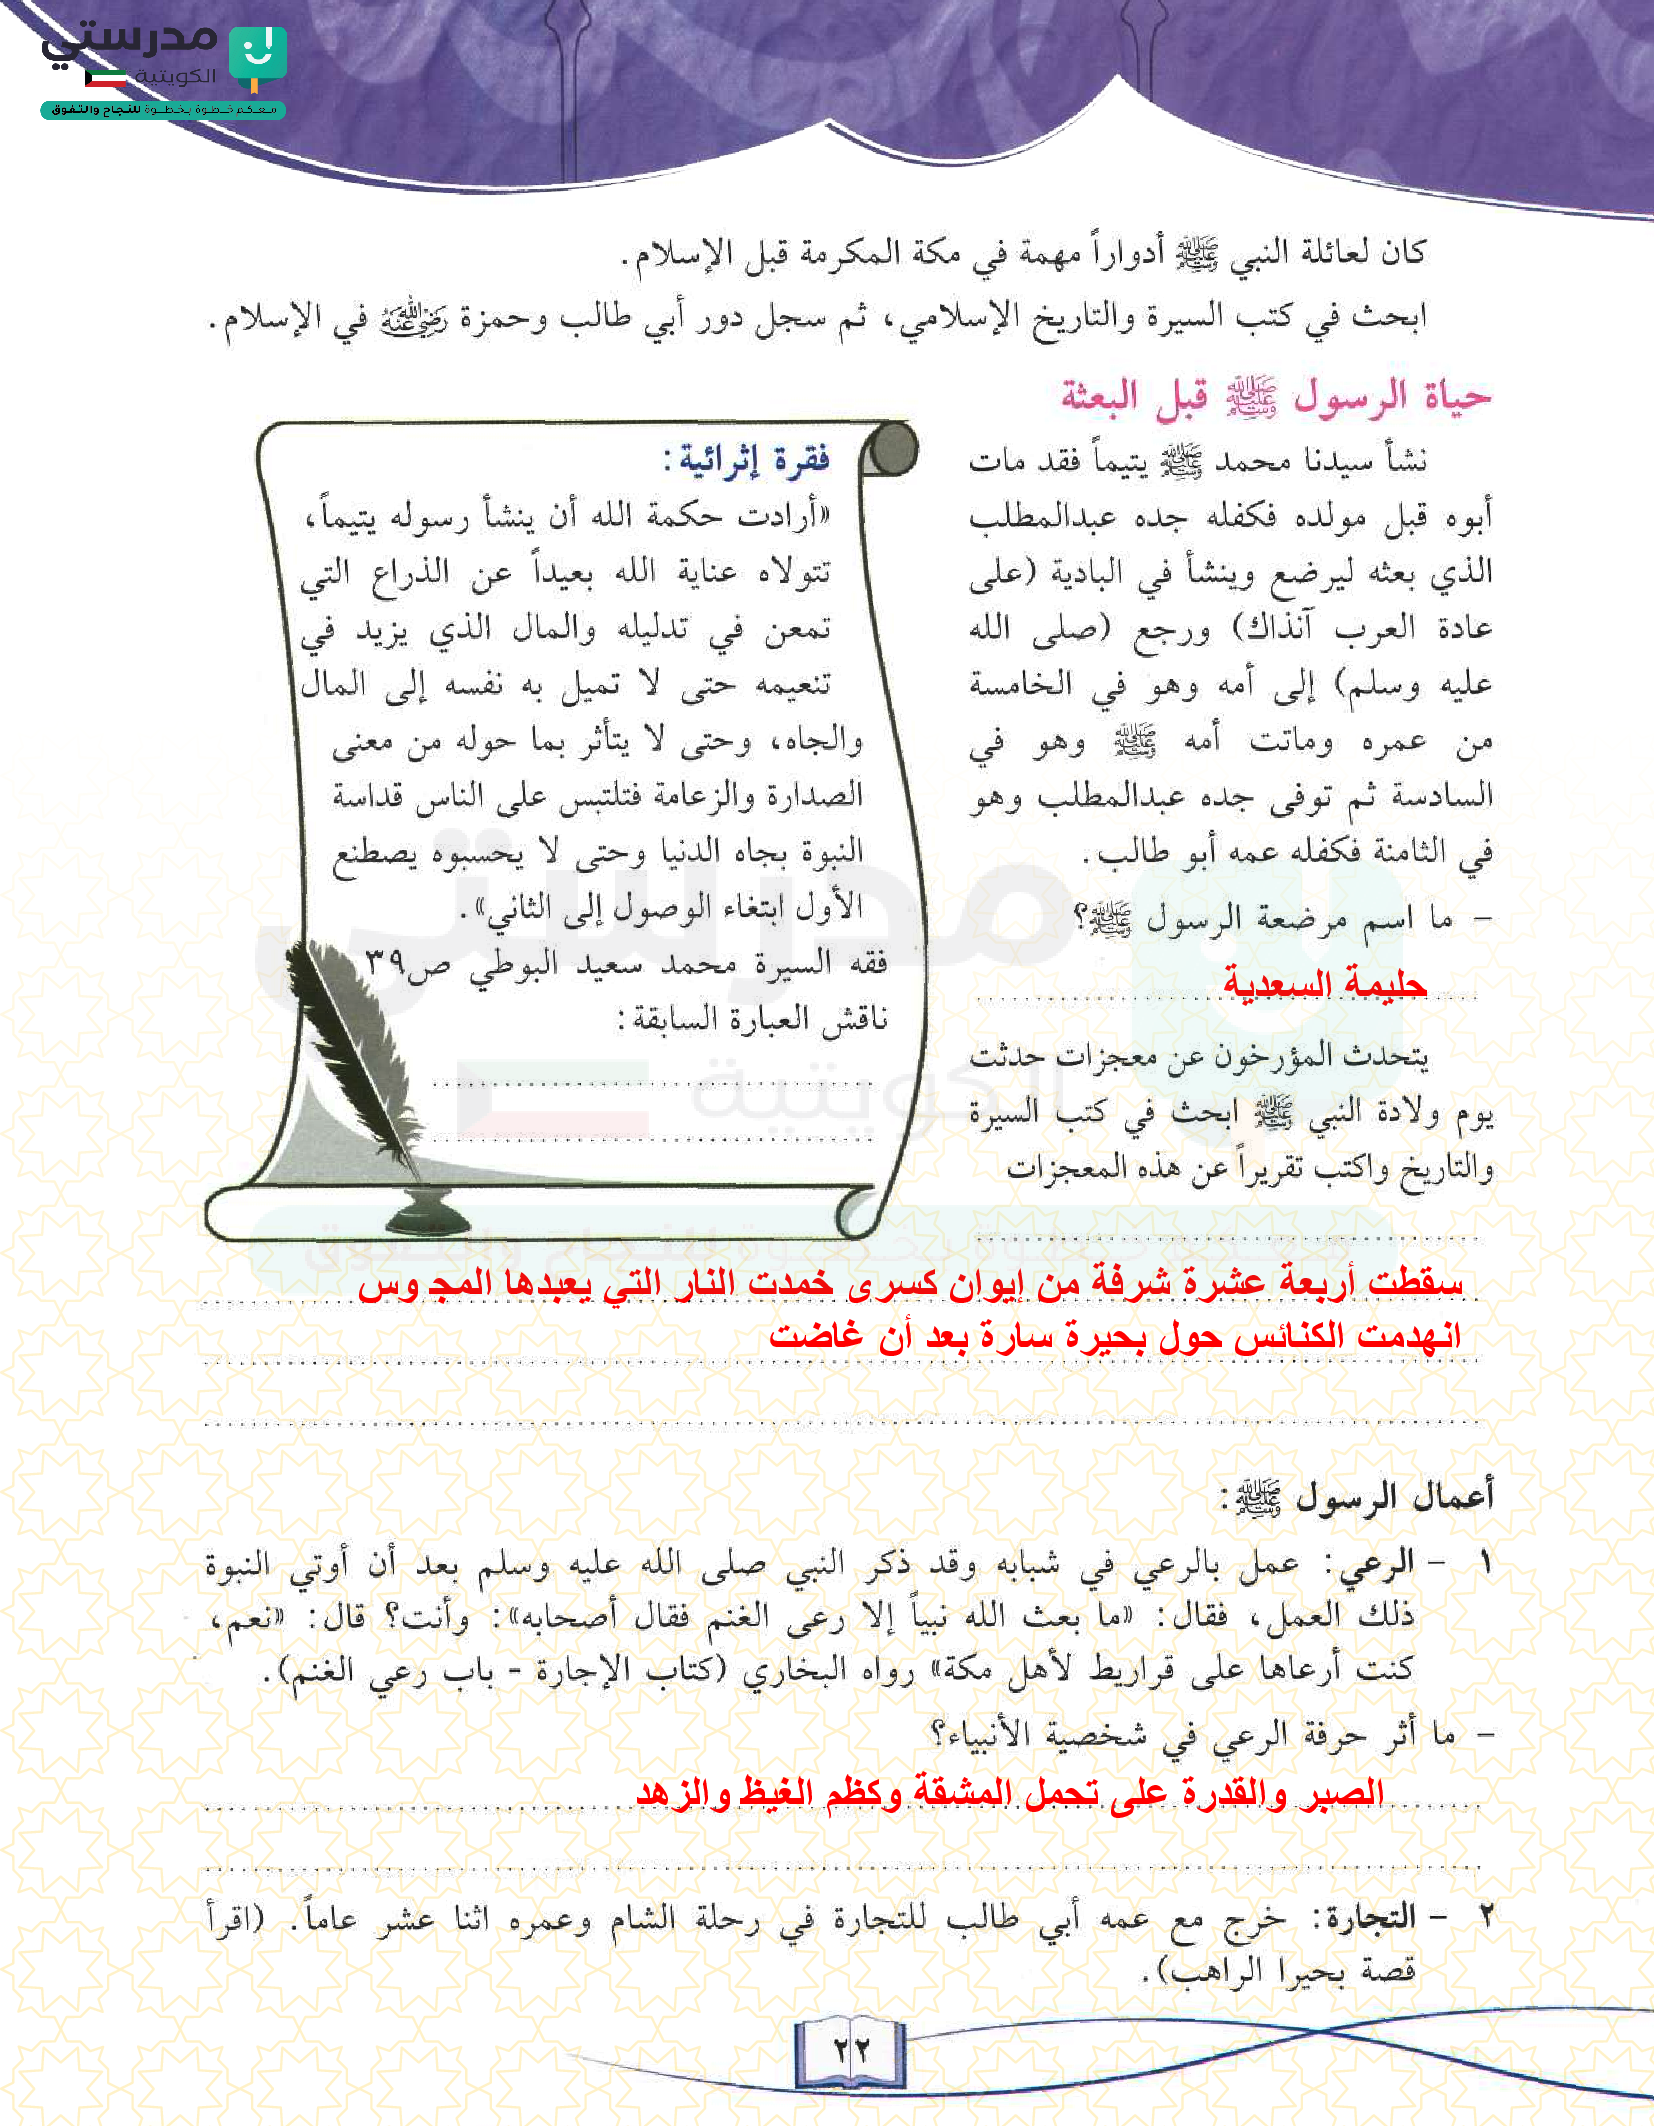 مدرستي
الكويتية
معكم خطوة بخطوة للنجاح والتفوق
كان لعائلة النبي ﷺ أدواراً مهمة في مكة المكرمة قبل الإسلام.
ابحث في كتب السيرة والتاريخ الإسلامي، ثم سجل دور أبي طالب وحمزة رضي الله عنه في الإسلام.
حياة الرسول ﷺ قبل البعثة
نشأ سيدنا محمد ﷺ يتيماً فقد مات
أبوه قبل مولده فكفله جده عبدالمطلب
الذي بعثه ليرضع وينشأ في البادية (على
عادة العرب آنذاك) ورجع (صلى الله
عليه وسلم) إلى أمه وهو في الخامسة
من عمره وماتت أمه ﷺ وهو في
السادسة ثم توفى جده عبدالمطلب وهو
في الثامنة فكفله عمه أبو طالب.
- ما اسم مرضعة الرسول ﷺ؟
حليمة السعدية
يتحدث المؤرخون عن معجزات حدثت
يوم ولادة النبي ﷺ ابحث في كتب السيرة
والتاريخ واكتب تقريراً عن هذه المعجزات
فقرة إثرائية:
«أرادت حكمة الله أن ينشأ رسوله يتيماً،
تتولاه عناية الله بعيداً عن الذراع التي
تمعن في تدليله والمال الذي يزيد في
تنعيمه حتى لا تميل به نفسه إلى المال
والجاه، وحتى لا يتأثر بما حوله من معنى
الصدارة والزعامة فتلتبس على الناس قداسة
النبوة بجاه الدنيا وحتى لا يحسبوه يصطنع
الأول ابتغاء الوصول إلى الثاني».
فقه السيرة محمد سعيد البوطي ص٣٩
ناقش العبارة السابقة:
سقطت أربعة عشرة شرفة من إيوان كسرى خمدت النار التي يعبدها المجوس
انهدمت الكنائس حول بحيرة سارة بعد أن غاضت
أعمال الرسول ﷺ:
١ - الرعي: عمل بالرعي في شبابه وقد ذكر النبي صلى الله عليه وسلم بعد أن أوتي النبوة
ذلك العمل، فقال: «ما بعث الله نبياً إلا رعى الغنم فقال أصحابه»: وأنت؟ قال: «نعم،
كنت أرعاها على قراريط لأهل مكة» رواه البخاري (كتاب الإجارة - باب رعي الغنم).
- ما أثر حرفة الرعي في شخصية الأنبياء؟
الصبر والقدرة على تحمل المشقة وكظم الغيظ والزهد
٢ - التجارة: خرج مع عمه أبي طالب للتجارة في رحلة الشام وعمره اثنا عشر عاماً. (اقرأ
قصة بحيرا الراهب).
٢٢